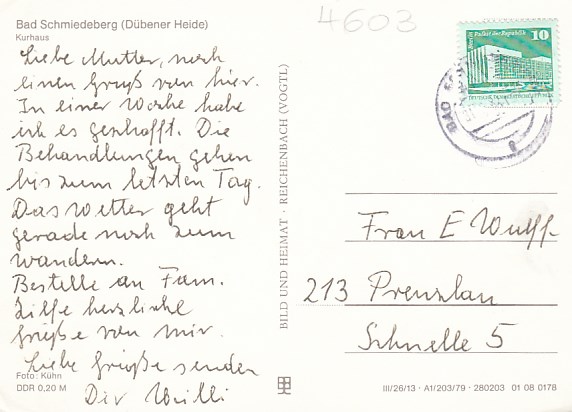 Bad Schmiedeberg (Dübener Heide)
Kurhaus
4603
Liebe Mutter, noch
einen Gruß von hier.
In einer Woche habe
ich es geschafft. Die
Behandlungen gehen
bis zum letzten Tag.
Das Wetter geht
gerade noch zum
wandern.
Bestelle an Fam.
Zilfe herzliche
Grüße von mir.
Liebe Grüße senden
Dir Willi
Foto: Kühn
DDR 0,20 M
BILD UND HEIMAT · REICHENBACH (VOGTL)
Berlin Palast der Republik
10
DEUTSCHE DEMOKRATISCHE REPUBLIK
BAD
Frau E Wulff
213 Prenzlau
Schnelle 5
III/26/13 · A1/203/79 · 280203 01 08 0178